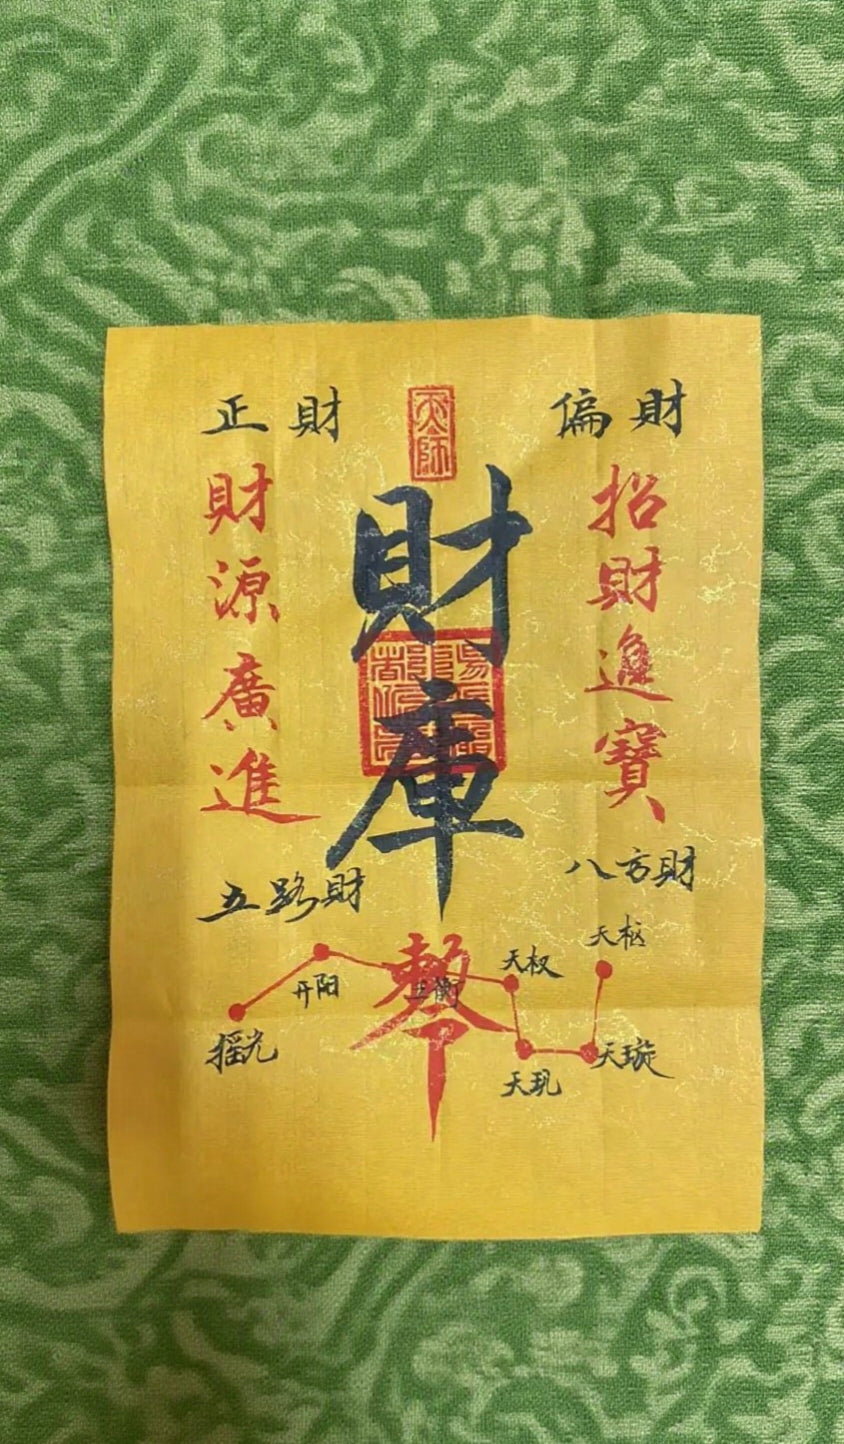 正財
偏財
天師
財庫
財源廣進
招財進寶
五路財
八方財
天枢
天权
开阳
玉衡
摇光
天璇
天玑